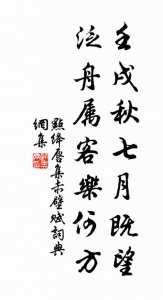 壬戌秋七月既望
泛舟属客樂何方
點绛唇集赤壁赋詞典
網集